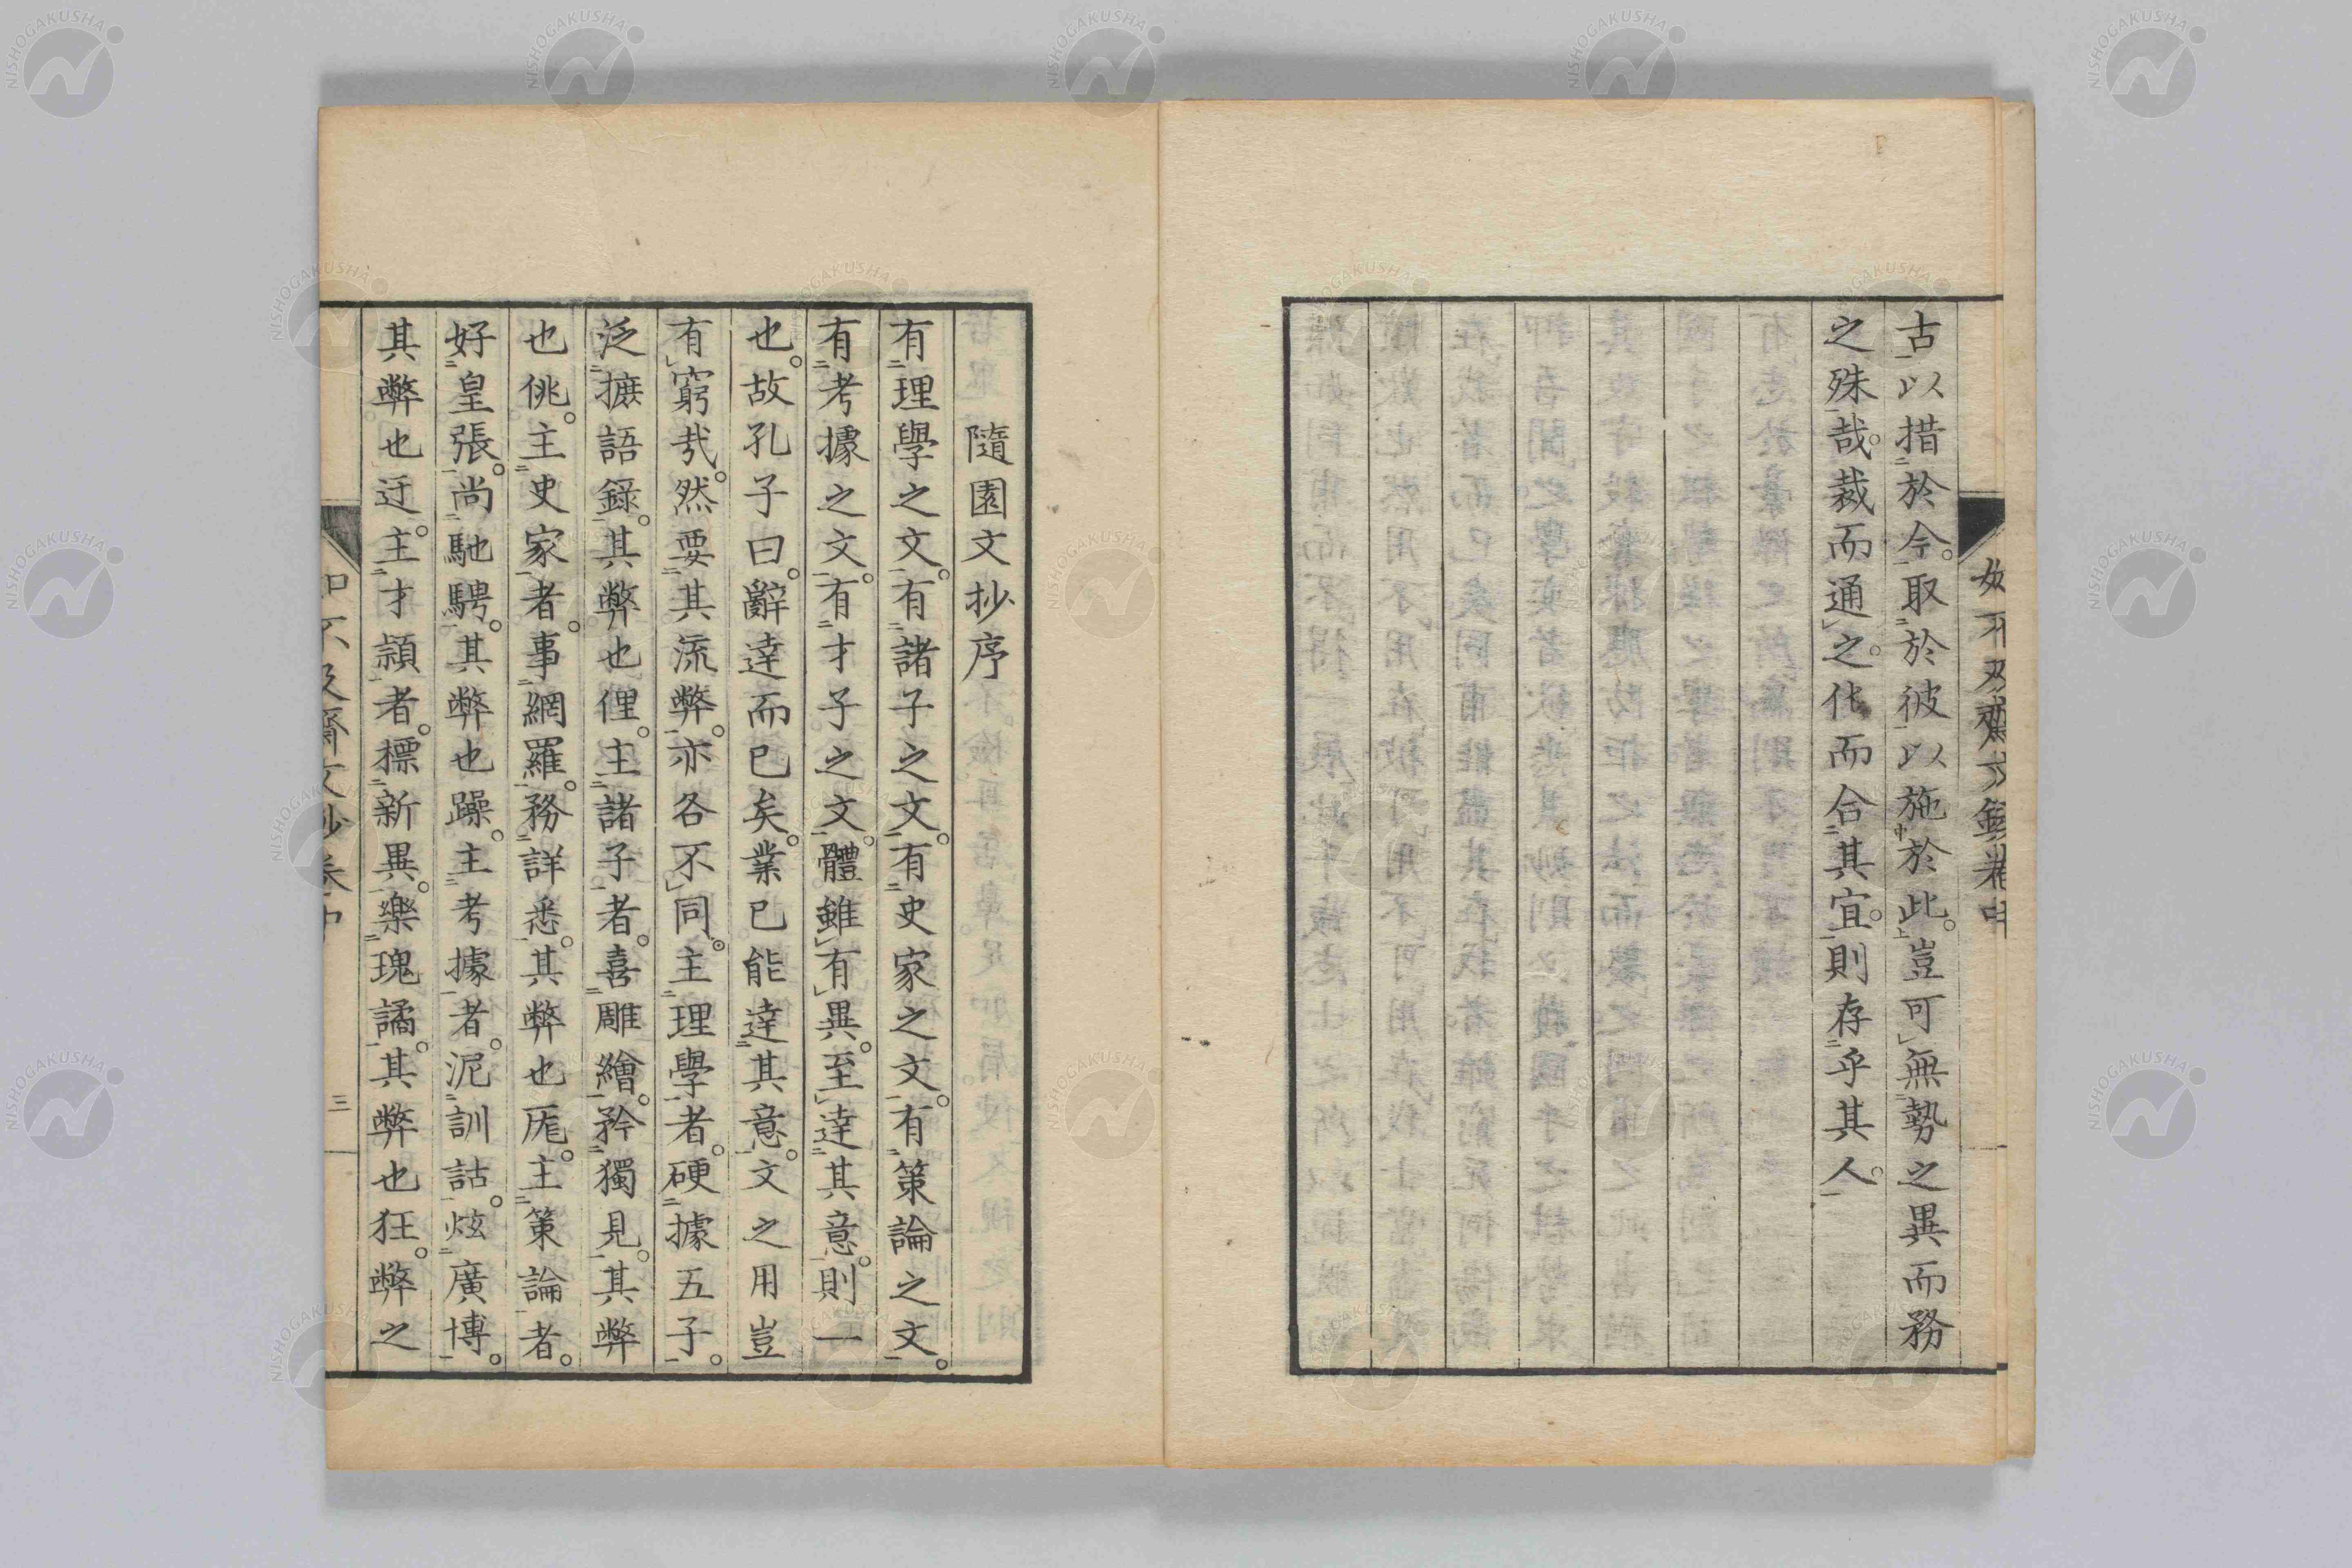 古以措於今。取於彼以施於此。豈可無勢之異而務
之殊哉。裁而通之。化而合其宜。則存乎其人。
隨園文抄序
有理學之文。有諸子之文。有史家之文。有策論之文。
有考據之文。有才子之文。體雖有異。至達其意。則一
也。故孔子曰。辭達而已矣。業已能達其意。文之用豈
有窮哉。然要其流弊。亦各不同。主理學者。硬據五子。
泛摭語錄。其弊也俚。主諸子者。喜雕繪。矜獨見。其弊
也佻。主史家者。事網羅。務詳悉。其弊也厖。主策論者。
好皇張。尚馳騁。其弊也躁。主考據者。泥訓詁。炫廣博。
其弊也迂。主才穎者。標新異。樂瑰譎。其弊也狂。弊之
三
NISHOGAKUSHA